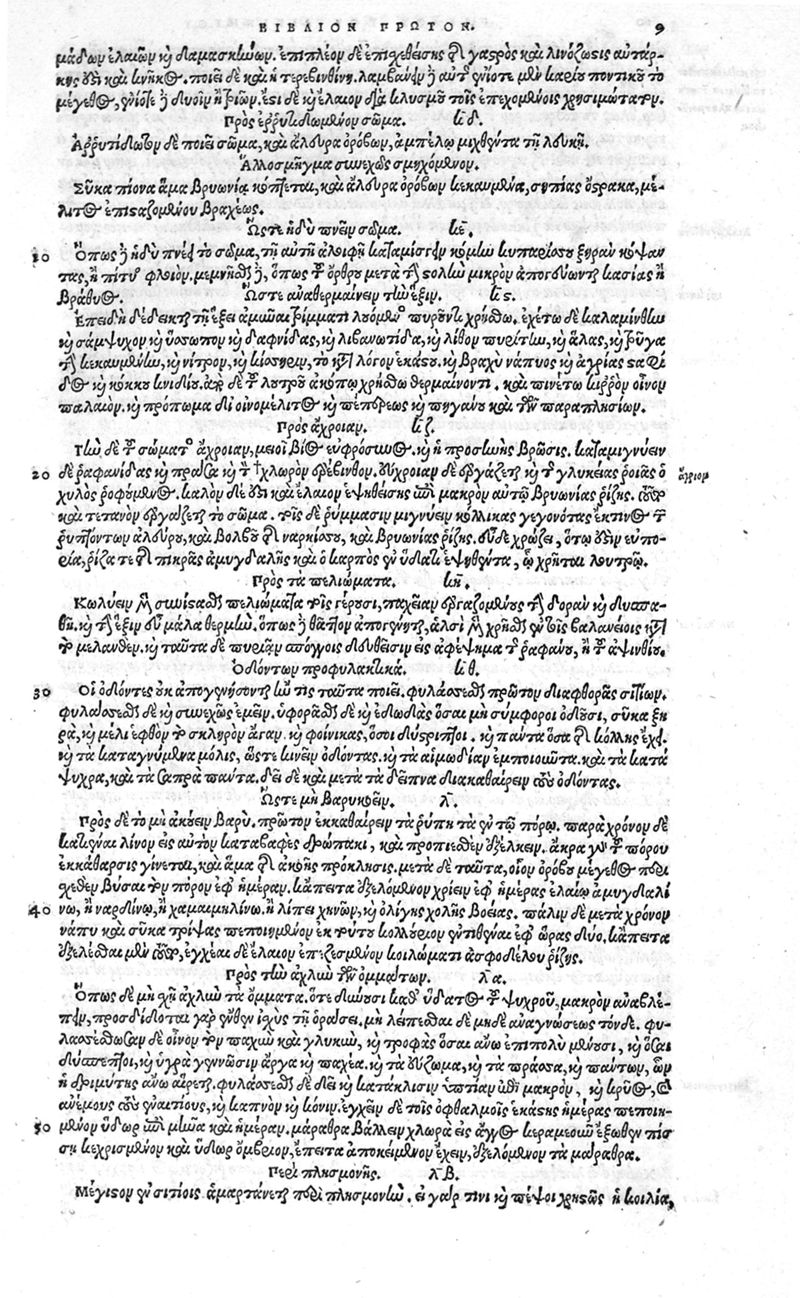 ΒΙΒΛΙΟΝ ΠΡΩΤΟΝ. 9
μάδων ἐλαιῶν καὶ δαμασκίνων. ἐπιπλέον δὲ ἐπιχεθείσης τῆς γαστρὸς καὶ λινόζωστις αὐτάρ-
κης ἐστὶ καὶ κνῆκος. ποιεῖ δὲ καὶ ἡ τερεβινθίνη. λαμβάνειν δὲ αὐτῆς ἐνίοτε μὲν καρύου ποντικοῦ τὸ
μέγεθος, ἐνίοτε δὲ δυοῖν ἢ τριῶν. ἔστι δὲ καὶ ἔλαιον διὰ κλυσμοῦ τοῖς ἐπεχομένοις χρησιμώτατον.
Πρὸς ἐῤῥυτιδωμένον σῶμα. κδ.
Ἀῤῥυτίδωτον δὲ ποιεῖ σῶμα, καὶ ἄλευρα ὀρόβων, ἀμπέλῳ μιχθέντα τῇ λευκῇ.
Ἄλλο σμῆγμα συνεχῶς σμηχόμενον.
Σῦκα πίονα ἅμα βρυωνίᾳ κόπτεται, καὶ ἄλευρα ὀρόβων κεκαυμένα, σηπίας ὄστρακα, μέ-
λιτος ἐπισταζομένου βραχέως.
Ὥστε ἡδὺ πνεῖν σῶμα. κε.
10 Ὅπως δὲ ἡδὺ πνέῃ τὸ σῶμα, τῇ αὐτῇ ἀλοιφῇ καταμίσγειν κόμην κυπαρίσσου ξηρὰν κόψαν
τας, ἢ πίτυος φλοιόν. μεμνῆσθαι δὲ, ὅπως τοῦ ὄρθρου μετὰ τὴν στολὴν μικρὸν ἀπογεύωνται κασίας ἢ
βράθυος. Ὥστε ἀναθερμαίνειν τὴν ἕξιν. κς.
Ἐπειδὴ δέδεικται τῇ ἕξει ἀμῶσαι τρίμματι λουόμενος πυροῦντι χρήσθω. ἐχέτω δὲ καλαμίνθην
καὶ σάμψυχον καὶ ὕσσωπον καὶ δαφνίδας, καὶ λιβανωτίδα, καὶ λίθον πυρίτην, καὶ ἅλας, καὶ τρύγα
τὴν κεκαυμένην, καὶ νίτρον, καὶ κίσσηριν, τὸ κατὰ λόγον ἑκάστου. καὶ βραχὺ νάπυος καὶ ἀγρίας σταφί
δος καὶ κόκκου κνιδίου. ἀπὸ δὲ τοῦ λουτροῦ ἀκόπῳ χρήσθω θερμαίνοντι. καὶ πινέτω κιῤῥὸν οἶνον
παλαιόν. καὶ πρόπωμα δι οἰνομέλιτος καὶ πεπέρεως καὶ πηγάνου καὶ τῶν παραπλησίων.
Πρὸς ἄχροιαν. κζ.
Τὴν δὲ τοῦ σώματος ἄχροιαν, μειοῖ βίος εὐφρόσυνος. καὶ ἡ προσηνὴς βρῶσις. καταμιγνύειν
20 δὲ ῥαφανίδας καὶ πράσα καὶ τὸν †χλωρὸν ἐρέβινθον. εὔχροιαν δὲ ἐργάζεται καὶ τῆς γλυκείας ῥοιᾶς ὁ ἄγριον
χυλὸς ῥοφούμενος. καλὸν δὲ ἐστι καὶ ἔλαιον ἑψηθείσης ἐπὶ μακρὸν αὐτῷ βρυωνίας ῥίζης. ὅπερ
καὶ τετανὸν ἐργάζεται τὸ σῶμα. τοῖς δὲ ῥύμμασιν μιγνύειν κόλλικας γεγονότας ἐκ τινος τῶν
ῥυπτόντων ἀλεύρου, καὶ βολβοῦ τῆς ναρκίσσου, καὶ βρυωνίας ῥίζης. οὐδὲ χρώζει, ὅτῳ ἐστὶν εὐπο-
ρία, ῥίζα τε τῆς πικρᾶς ἀμυγδαλῆς καὶ ὁ καρπὸς ἐν ὕδατι ἑψηθέντα, ᾧ χρῆται λουτρῷ.
Πρὸς τὰ πελιώματα. κη.
Κωλύειν δὲ συνίστασθαι πελιώματα τοῖς γέρουσι, παχεῖαν ἐργαζομένους τὴν δορὰν καὶ δυσπα-
θῆ. καὶ τὴν ἕξιν εὖ μάλα θερμήν. ὅπως δὲ θᾶττον ἀπογένηται, ἁλσὶ δὲ χρῆσθαι ἐν τοῖς βαλανείοις κατὰ
τῶν μελανθέν. καὶ ταῦτα δὲ πυριᾶν σπόγγοις δευθεῖσιν εἰς ἀφέψημα τοῦ ῥαφάνου, ἢ τοῦ ἀψινθίου.
Ὀδόντων προφυλακτικά. κθ.
30 Οἱ ὀδόντες οὐκ ἀπογενήσονται ἤν τις ταῦτα ποιεῖ. φυλάσσεσθαι πρῶτον διαφθορὰς σιτίων.
φυλάσσεσθαι δὲ καὶ συνεχῶς ἐμεῖν. ὑφορᾶσθαι δὲ καὶ ἐδωδὰς ὅσαι μὴ σύμφοροι ὀδοῦσι, σῦκα ξη
ρὰ, καὶ μέλι ἑφθὸν τὸ σκληρὸν ἄγαν. καὶ φοίνικας, ὅσοι δύστριπτοι. καὶ πάντα ὅσα τῆς κόλλης ἔχει.
καὶ τὰ καταγνύμενα μόλις, ὥστε κινεῖν ὀδόντας. καὶ τὰ αἱμωδίαν ἐμποιοῦντα. καὶ τὰ κατά
ψυχρα, καὶ τὰ σαπρὰ πάντα. δεῖ δὲ καὶ μετὰ τὰ δεῖπνα διακαθαίρειν τοὺς ὀδόντας.
Ὥστε μὴ βαρυηκοεῖν. λ.
Πρὸς δὲ τὸ μὴ ἀκούειν βαρὺ. πρῶτον ἐκκαθαίρειν τὰ ῥύπη τὰ ἐν τῷ πόρῳ. παρὰ χρόνον δὲ
καθιέναι λίνον εἰς αὐτὸν καταβαφὲς δρώπακι, καὶ προπιεσθὲν ἐξέλκειν. ἄκρα γὰρ τοῦ πόρου
ἐκκάθαρσις γίνεται, καὶ ἅμα τῆς ἀκοῆς πρόκλησις. μετὰ δὲ ταῦτα, οἷον ὀρόβου μέγεθος περι
χεθὲν βύσαι τὸν πόρον ἐφ' ἡμέραν. κἄπειτα ἐξελόμενον χρίειν ἐφ' ἡμέρας ἐλαίῳ ἀμυγδαλί
40 νῳ, ἢ ναρδίνῳ, ἢ χαμαιμηλίνῳ. ἢ λίπει χηνῶν, καὶ ὀλίγης χολῆς βοέας. πάλιν δὲ μετὰ χρόνον
νάπυ καὶ σῦκα τρίψας πεποιημένον ἐκ τούτου κολλύριον ἐντιθέναι ἐφ' ὥρας δύο. κἄπειτα
ἐξελέσθαι μὲν ὅπερ, ἐγχέαι δὲ ἔλαιον ἐπεζεσμένον κοιλώματι ἀσφοδέλου ῥίζης.
Πρὸς τὴν ἀχλὺν τῶν ὀμμάτων. λα.
Ὅπως δὲ μὴ ἔχῃ ἀχλὺν τὰ ὄμματα. ὅτε δύνουσι καθ' ὕδατος τοῦ ψυχροῦ, μακρὸν ἀναβλέ-
πειν, προσδίδοται γὰρ ἔνθεν ἰχὺς τῇ ὁράσει. μὴ λείπεσθαι δὲ μηδὲ ἀναγνώσεως τόνδε. φυ-
λασσέσθωσαν δὲ οἶνον τὸν παχὺν καὶ γλυκὺν, καὶ τροφὰς ὅσαι ἄνω ἐπιπολὺ μένουσι, καὶ ὅσαι
δύσπεπτοι, καὶ ὑγρὰ γεννῶσιν ἀργὰ καὶ παχέα. καὶ τὰ εὔζωμα, καὶ τὰ πράσσα, καὶ πάντων, ὧν
ἡ δριμύτης ἄνω αἴρεται. φυλάσσεσθαι δὲ δεῖ καὶ κατάκλισιν ὑπτίαν ἐπὶ μακρὸν, καὶ κρύος, καὶ
ἀνέμους τοὺς ἐναντίους, καὶ καπνὸν καὶ κόνιν. ἐγχεῖν δὲ τοῖς ὀφθαλμοῖς ἑκάστης ἡμέρας πεποιη-
50 μένον ὕδωρ ἐπὶ μῆνα καὶ ἡμέραν. μάραθρα βάλλειν χλωρὰ εἰς ἄγγος κεραμεοῦν ἔξωθεν πίσ
σῃ κεχρισμένον καὶ ὕδωρ ὄμβριον, ἔπειτα ἀποκείμενον ἔχειν, ἐξελόμενον τὰ μάραθρα.
Περὶ πλησμονῆς. λβ.
Μέγιστον ἐν σιτίοις ἁμαρτάνεται περὶ πλησμονὴν. εἰ γάρ τινι καὶ πέψοι χρηστῶς ἡ κοιλία,